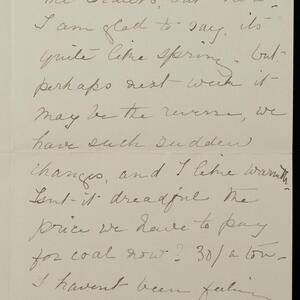 but now
I am glad to say, its
quite like spring - but
perhaps next week it
may be the reverse, we
have such sudden
changes, and I like warmth.
Isnt it dreadful the
price we have to pay
for coal now? 30/ a ton -
I havent been feeling